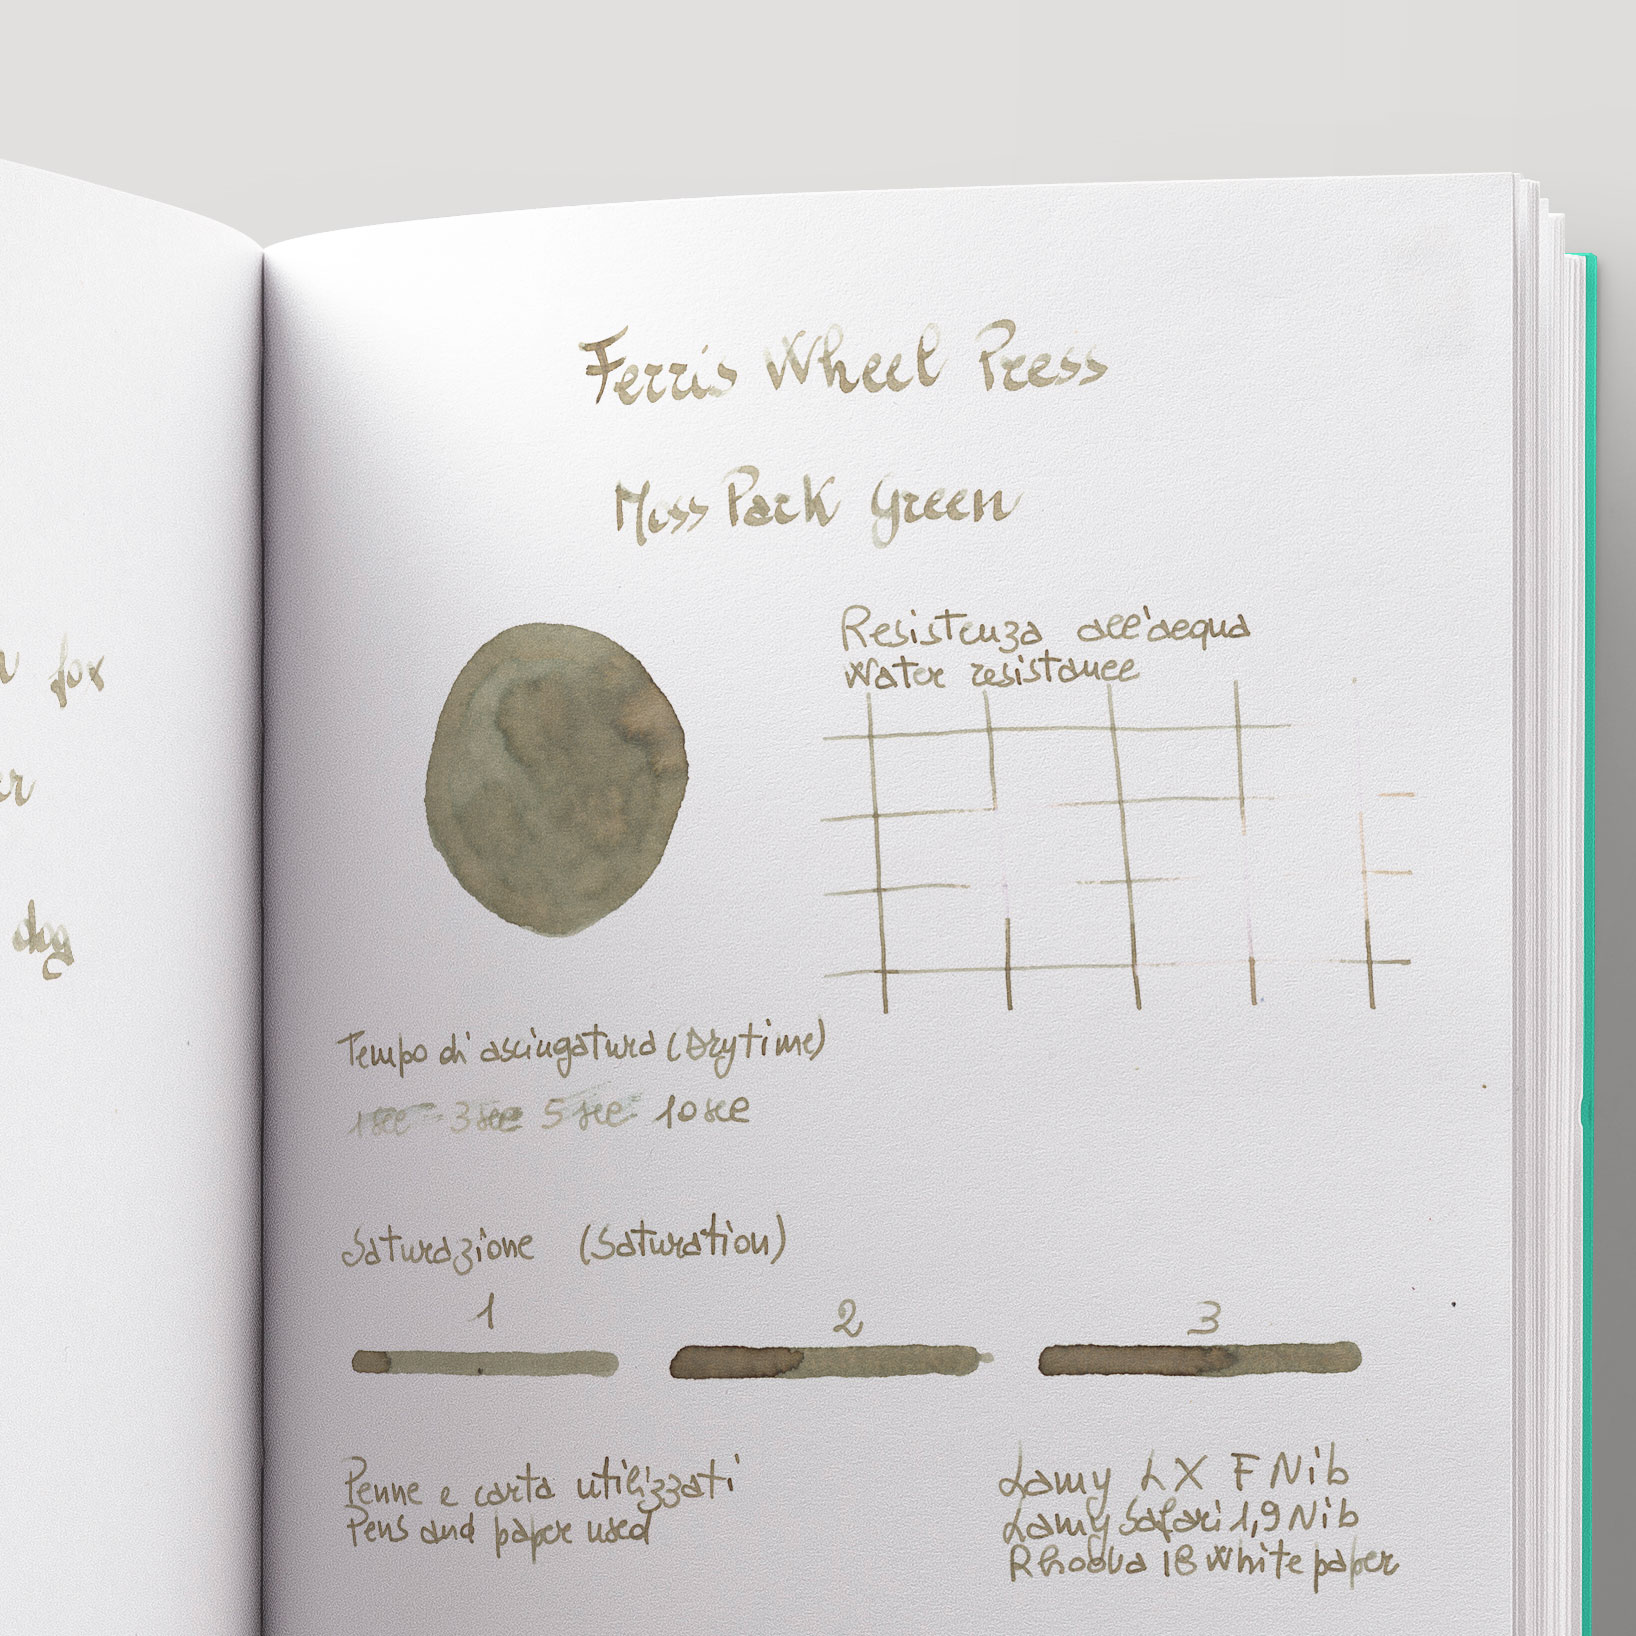 for
er
dog
Ferris Wheel Press
Moss Park Green
Resistenza all'acqua
Water resistance
Tempo di asciugatura (Drytime)
1 sec 3 sec 5 sec 10 sec
Saturazione (Saturation)
1 2 3
Penne e carta utilizzati
Pens and paper used
Lamy LX F Nib
Lamy Safari 1,9 Nib
Rhodia 18 White paper